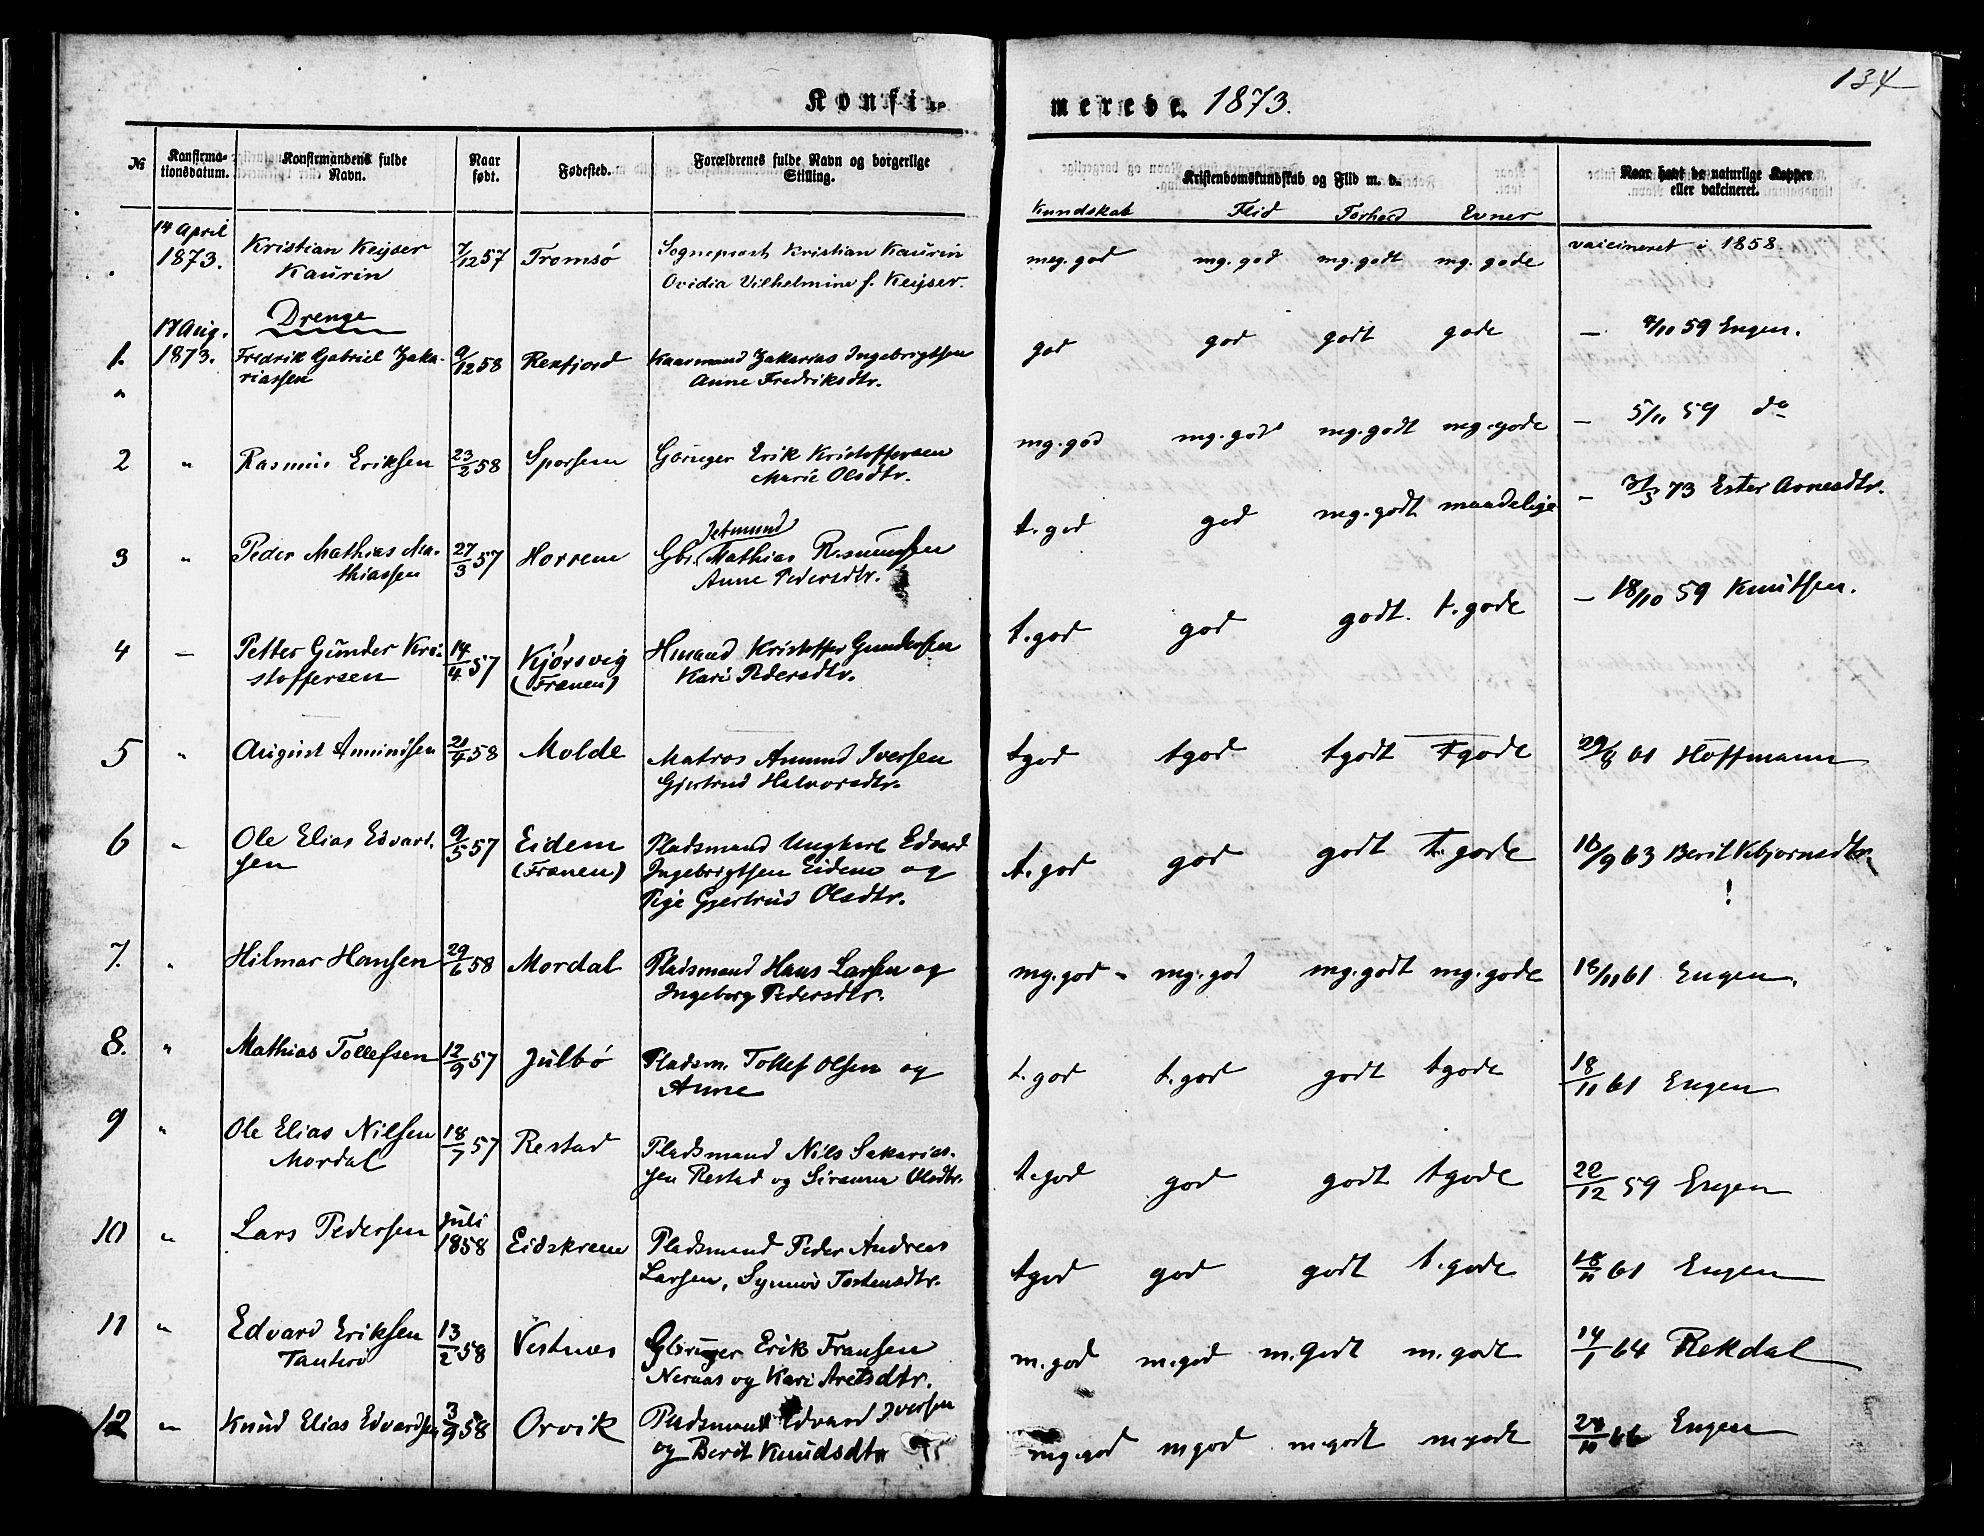 134
Konfirmerede 1873.
№ Konfirmationsdatum. Konfirmandens fulde Navn. Naar født. Fødested. Forældrenes fulde Navn og borgerlige Stilling. Kristendomskundskab og Flid m. v. Naar havt de naturlige Kopper eller vakcineret.
Kundskab Flid Forhold Evner
14 April 1873. Kristian Keyser Kaurin 7/12 57 Tromsø Sogneprest Kristian Kaurin meg. god mg. god mg. godt mg. gode vaccineret i 1858.
Ovidia Vilhelmine f. Keyser.
Drenge
1. 17 Aug. 1873. Fredrik Gabriel Zaka- 9/12 58 Renfjord Kaarmand Zakarias Ingebrigtsen god god godt gode — 4/11 59 Engen.
riassen Anne Fredriksdtr.
2 " Rasmus Eriksen 23/2 58 Sporsem Gbruger Erik Kristoffersen mg. god mg. god mg. godt mg. gode — 5/11 59 do
Marie Olsdtr.
3 " Peder Mathias Ma- 27/3 57 Horrem Gbr. Jetmund Mathias Rasmussen t. god god mg. godt maadelige — 31/3 73 Ester Arnesdtr.
thiassen Anne Pedersdtr.
4 — Petter Gunder Kri- 14/4 57 Kjørsvig Hmand Kristoffer Gundersen t. god god godt. t. gode — 18/10 59 Knutsen.
stoffersen (Frænen) Kari Pedersdtr.
5 " August Amundsen 21/4 58 Molde Matros Amund Iversen tgod tgod tgodt tgode 29/8 61 Hoffmann
Gjertrud Halvorsdtr.
6 " Ole Elias Edvard- 9/5 57 Eidem Pladsmand Ungkarl Edvard t. god god godt t. gode 10/9 63 Berit Vebjørnsdtr.
sen (Frænen) Ingebrigtsen Eidem og !
Pige Gjertrud Olsdtr.
7. " Hilmar Hansen 29/6 58 Mordal Pladsmand Hans Larsen og mg. god mg. god mg. godt mg. gode 18/11 61 Engen.
Ingeborg Pedersdtr.
8. " Mathias Tollefsen 12/9 57 Julbø Pladsm. Tollef Olsen og t. god t. god godt tgode 18/11 61 Engen
Anne
9 " Ole Elias Nilsen 18/7 57 Restad Pladsmand Nils Sakarias- t. god god godt tgode 22/12 59 Engen
Mordal sen Restad og Olsdtr.
10 " Lars Pedersen Juli 1858 Eidskrem Pladsmand Peder Andreas tgod god godt t. gode 18/11 61 Engen
Larsen, Synnøv Tostensdtr.
11 " Edvard Eriksen 13/2 58 Vestnes Gbruger Erik Fransen m. god m. god m. godt m. godt 14/1 64 Rekdal
Tautero Neraas og Kari Aretsdtr.
12 " Knud Elias Edvardsen 3/9 58 Orvik Pladsmand Edvard Iversen mg. god mgod m. godt mgodt Engen
og Berit Knudsdtr